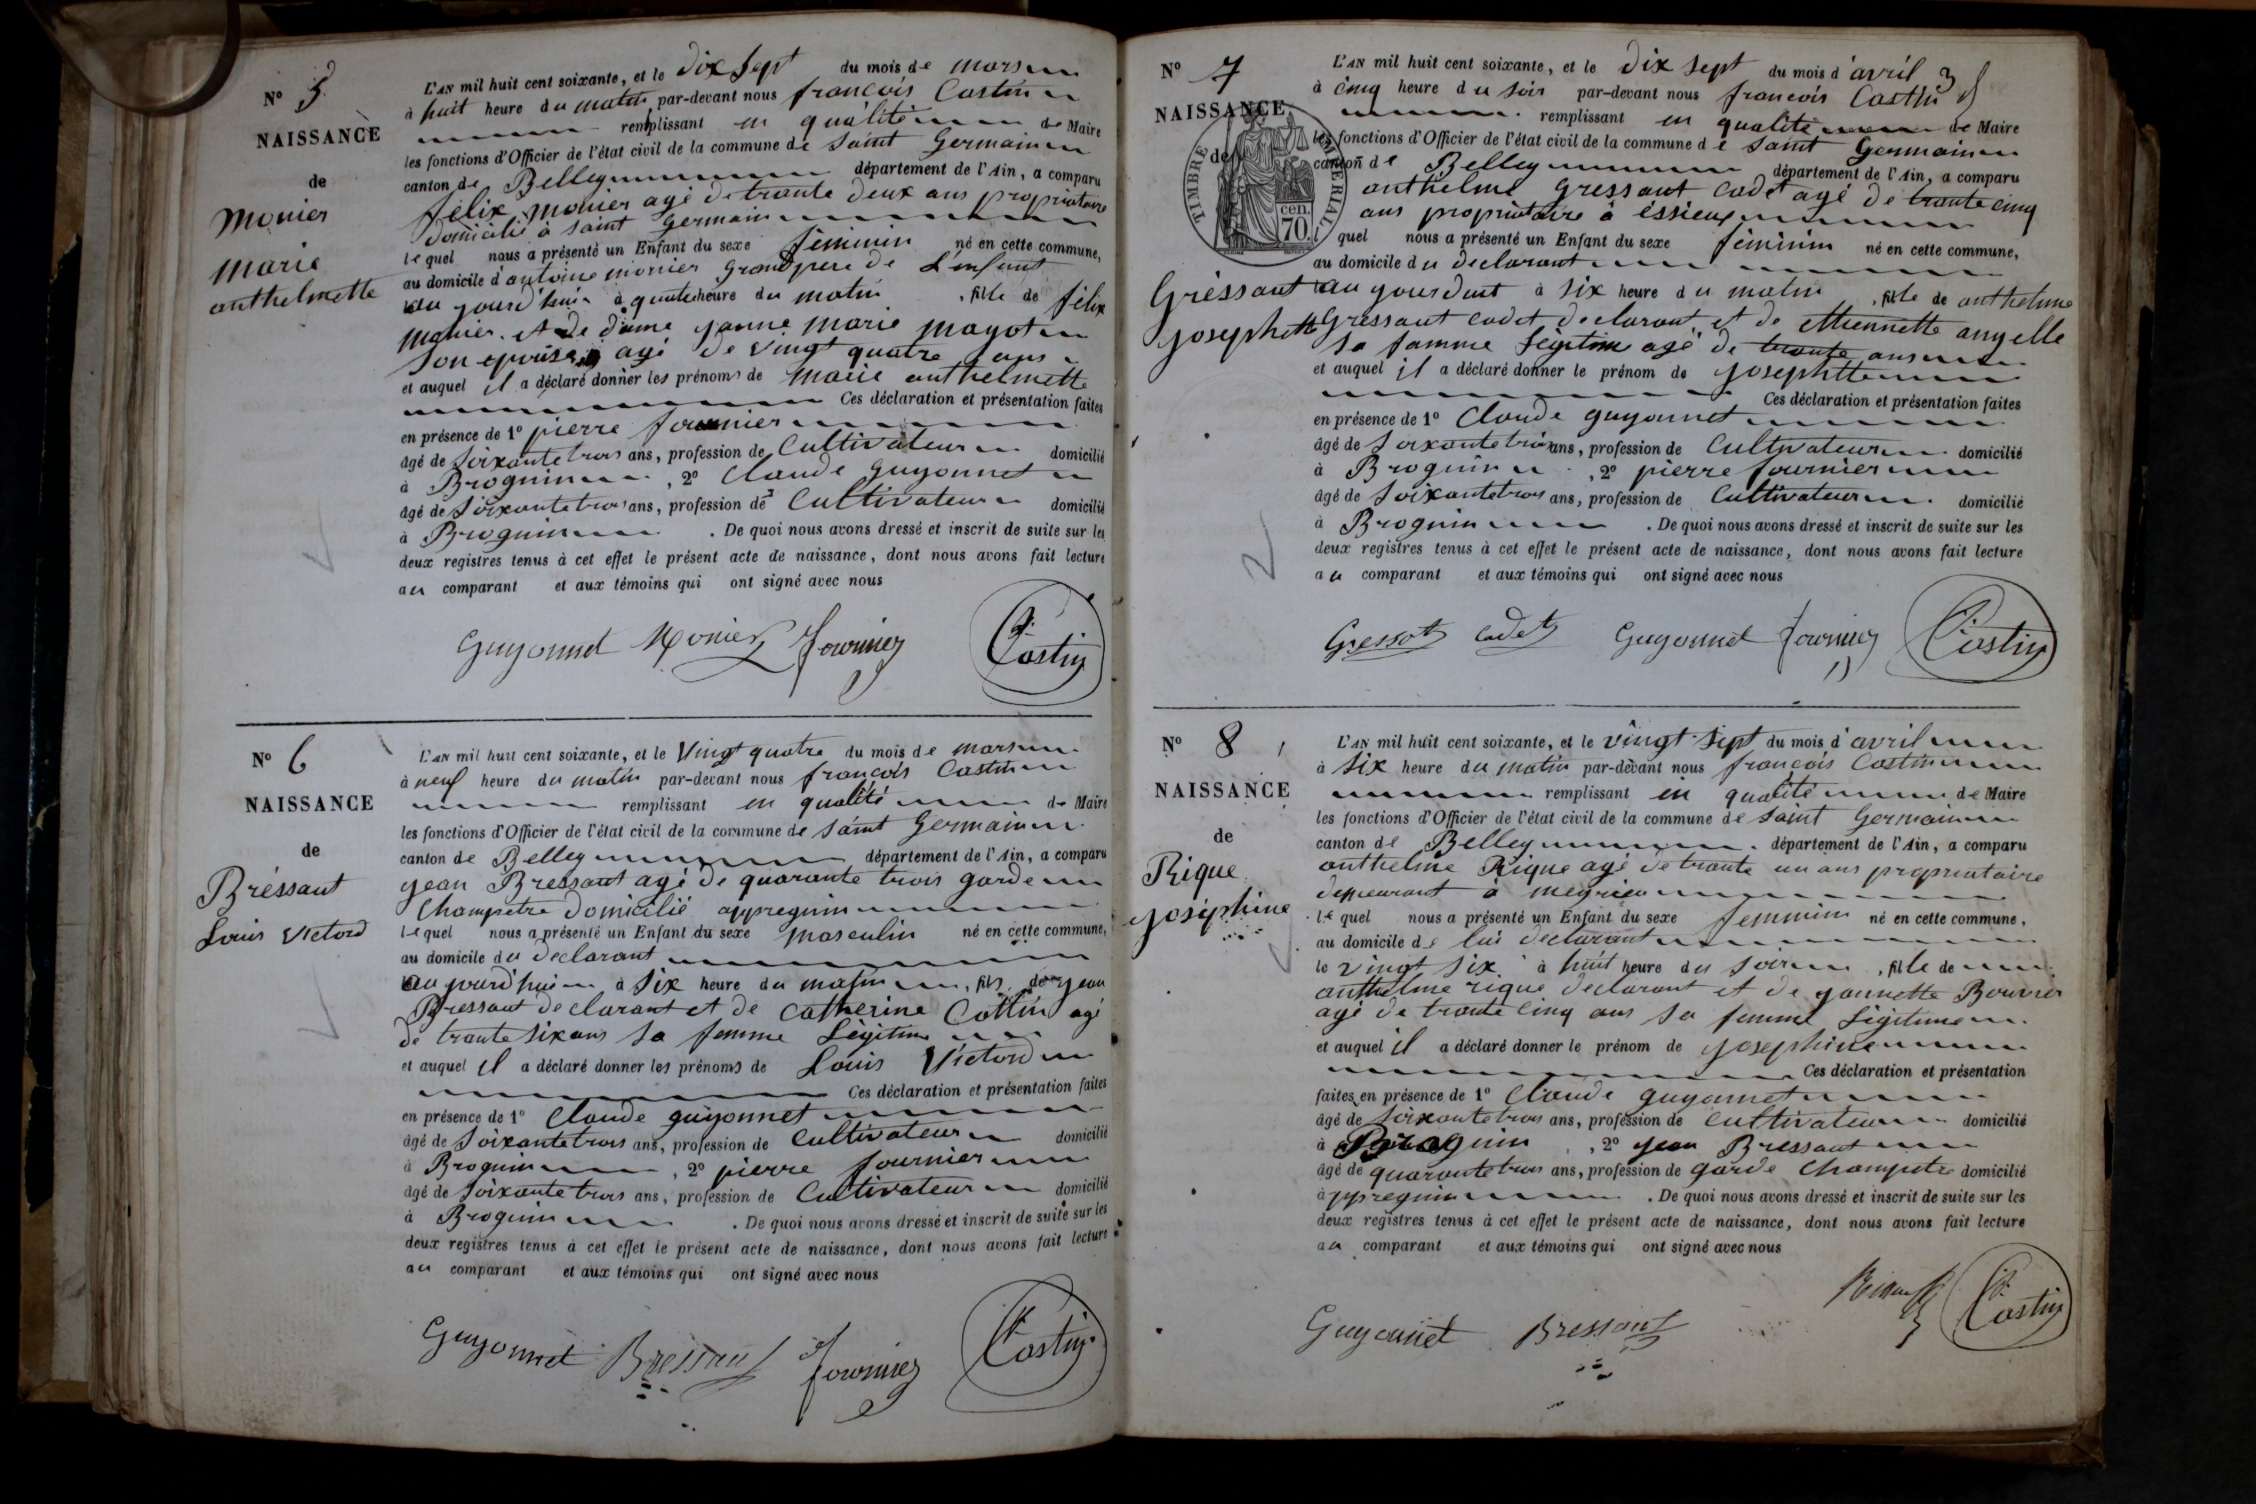 N° 5
NAISSANCE
de
monier
marie
anthelmette
L'AN mil huit cent soixante, et le dix sept du mois de mars
à huit heure du matin par-devant nous francois Castin
remplissant en qualité de Maire
les fonctions d'Officier de l'état civil de la commune de saint Germain
canton de Belley département de l'Ain, a comparu
félix monier agé de trante deux ans propriataire
domicilié à saint Germain
lequel nous a présenté un Enfant du sexe féminin né en cette commune,
au domicile d'antoine monier Grandpere de L'enfant
au jourd'hui à quatre heure du matin , fille de félix
monier et de dame janne marie mayot
son epouse agé de vingt quatre ans
et auquel il a déclaré donner les prénoms de marie anthelmette
Ces déclaration et présentation faites
en présence de 1° pierre fournier
âgé de soixante trois ans, profession de Cultivateur domicilié
à Brognin , 2° Claude Guyonnet
âgé de soixante trois ans, profession de Cultivateur domicilié
à Brognin . De quoi nous avons dressé et inscrit de suite sur les
deux registres tenus à cet effet le présent acte de naissance, dont nous avons fait lecture
au comparant et aux témoins qui ont signé avec nous
Guyonnet Monier fournier Castin
N° 6
NAISSANCE
de
Bressaut
Louis Victord
L'AN mil huit cent soixante, et le Vingt quatre du mois de mars
à neuf heure du matin par-devant nous francois Castin
remplissant en qualité de Maire
les fonctions d'Officier de l'état civil de la commune de saint Germain
canton de Belley département de l'Ain, a comparu
jean Bressaut agé de quarante trois garde
Champetre domicilié appregnin
lequel nous a présenté un Enfant du sexe masculin né en cette commune,
au domicile du declarant
au jourd'hui à six heure du matin , fils de jean
Bressaut declarant et de catherine Cottin agé
de trante six ans sa femme Légitime
et auquel il a déclaré donner les prénoms de Louis Victord
Ces déclaration et présentation faites
en présence de 1° Claude guyonnet
âgé de soixante trois ans, profession de Cultivateur domicilié
à Brognin , 2° pierre fournier
âgé de soixante trois ans, profession de Cultivateur domicilié
à Brognin . De quoi nous avons dressé et inscrit de suite sur les
deux registres tenus à cet effet le présent acte de naissance, dont nous avons fait lecture
au comparant et aux témoins qui ont signé avec nous
Guyonnet Bressaut fournier Castin
N° 7
NAISSANCE
de
TIMBRE IMPERIAL
70 cen.
Gressaut
josephette
L'AN mil huit cent soixante, et le dix sept du mois d'avril
à cinq heure du soir par-devant nous francois Castin
remplissant en qualité de Maire
les fonctions d'Officier de l'état civil de la commune de saint Germain
canton de Belley département de l'Ain, a comparu
anthelme Gressaut cadet agé de trante cinq
ans propriataire à éssieux
lequel nous a présenté un Enfant du sexe féminin né en cette commune,
au domicile du declarant
au jourdui à six heure du matin , fille de anthelme
Gressaut cadet declarant et de ettiennette angelle
sa famme légitime agé de trante ans
et auquel il a déclaré donner le prénom de josephette
Ces déclaration et présentation faites
en présence de 1° Claude guyonnet
âgé de soixante trois ans, profession de Cultivateur domicilié
à Brognin , 2° pierre fournier
âgé de soixante trois ans, profession de Cultivateur domicilié
à Brognin . De quoi nous avons dressé et inscrit de suite sur les
deux registres tenus à cet effet le présent acte de naissance, dont nous avons fait lecture
au comparant et aux témoins qui ont signé avec nous
Gressot cadet Guyonnet fournier Castin
2
N° 8
NAISSANCE
de
Rique
joséphine
L'AN mil huit cent soixante, et le vingt sept du mois d'avril
à six heure du matin par-devant nous francois Castin
remplissant en qualité de Maire
les fonctions d'Officier de l'état civil de la commune de saint Germain
canton de Belley département de l'Ain, a comparu
anthelme Rique agé de trante un ans propriataire
demeurant à meyrieu
lequel nous a présenté un Enfant du sexe feminin né en cette commune,
au domicile de lui declarant
le vingt six à huit heure du soir , fille de
anthelme rique declarant et de jannette Bouvier
agé de trante cinq ans sa femme légitime
et auquel il a déclaré donner le prénom de josephine
Ces déclaration et présentation
faites en présence de 1° Claude guyonnet
âgé de soixante trois ans, profession de cultivateur domicilié
à Brognin , 2° jean Bressaut
âgé de quarante trois ans, profession de garde Champetre domicilié
à ppregnin . De quoi nous avons dressé et inscrit de suite sur les
deux registres tenus à cet effet le présent acte de naissance, dont nous avons fait lecture
au comparant et aux témoins qui ont signé avec nous
Guyonnet Bressaut Castin